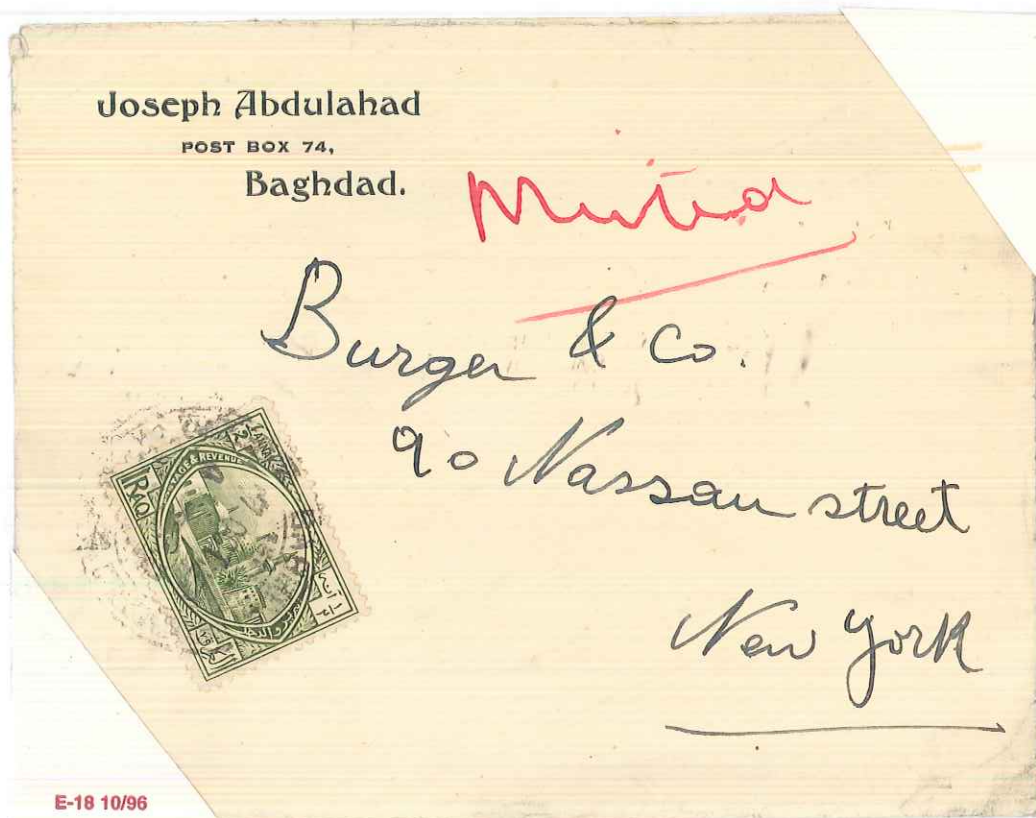 Joseph Abdulahad
POST BOX 74,
Baghdad.
Burger & Co.
90 Nassau street
New York
POSTAGE & REVENUE
IRAQ
E-18 10/96